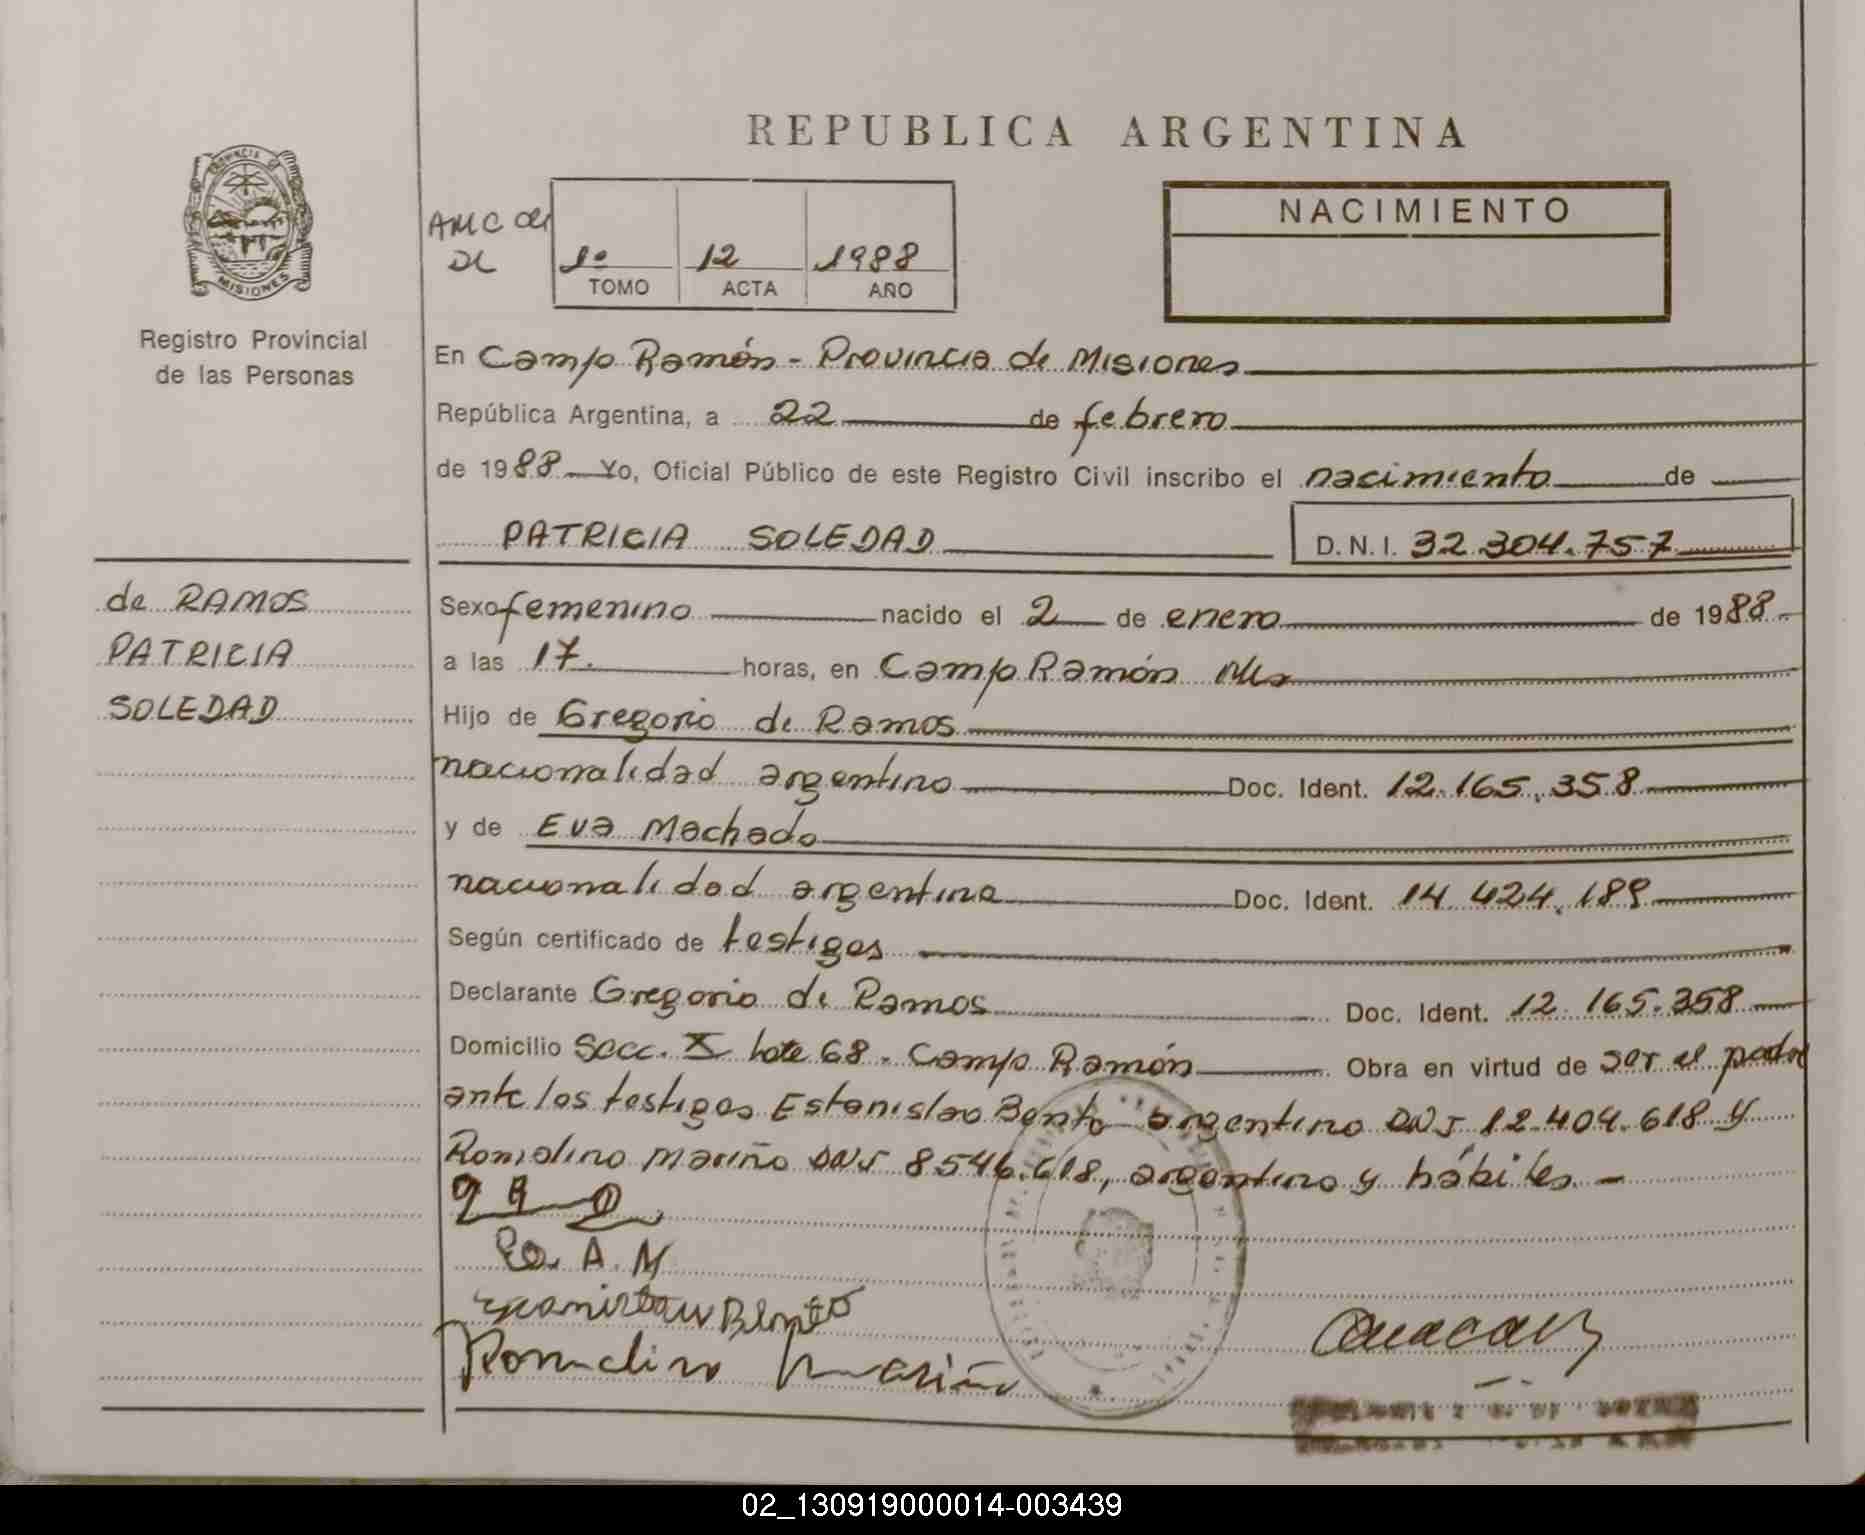 REPUBLICA ARGENTINA
PROVINCIA DE
MISIONES
Registro Provincial
de las Personas
NACIMIENTO
1º 12 1988
TOMO ACTA AÑO
En Campo Ramón - Provincia de Misiones
República Argentina, a 22 de febrero
de 1988 Yo, Oficial Público de este Registro Civil inscribo el nacimiento de
PATRICIA SOLEDAD D.N.I. 32.304.757
de RAMOS
PATRICIA
SOLEDAD
Sexo femenino nacido el 2 de enero de 1988.
a las 17. horas, en Campo Ramón Mis
Hijo de Gregorio de Ramos
nacionalidad argentino Doc. Ident. 12.165.358
y de Eva Machado
nacionalidad argentina Doc. Ident. 14.424.189
Según certificado de testigos
Declarante Gregorio de Ramos Doc. Ident. 12.165.358
Domicilio Secc. X Lote 68. Campo Ramón Obra en virtud de ser el padre
ante los testigos Estanislao Bento argentino DNI 12.404.618 y
Romalino Mariño DNI 8546.618, argentino y hábiles. -
A. M
Bento
Romalino Mariño
02_130919000014-003439